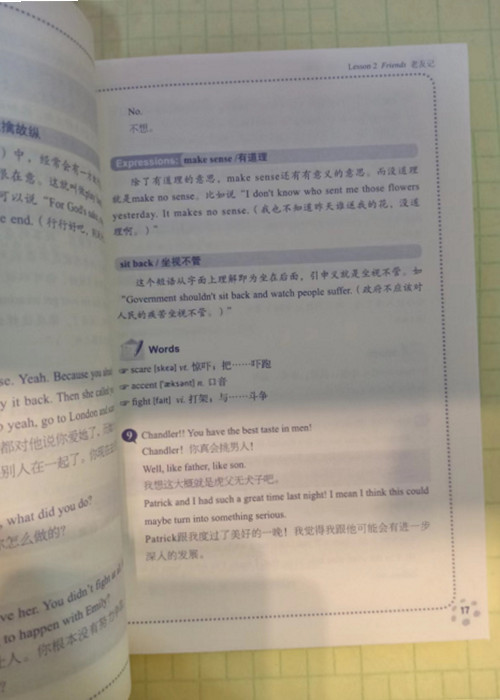 擒故纵
）中，经常会有一
可以说 "For God's
e end.（行行好吧，
se. Yeah. Because you
y it back. Then she
o yeah, go to London and
都对他说你爱她了，
别人在一起了，你
, what did you do?
你怎么做的？
ve her. You didn't fight
to happen with Emily?
士人。你根本没有努力
？
Lesson 2 Friends 老友记
No.
不想。
Expressions: make sense /有道理
除了有道理的意思，make sense还有有意义的意思。而没道理
就是make no sense。比如说 "I don't know who sent me those flowers
yesterday. It makes no sense.（我也不知道昨天谁送我的花，没道
理啊。）"
sit back / 坐视不管
这个短语从字面上理解即为坐在后面，引申义就是坐视不管。如
"Government shouldn't sit back and watch people suffer.（政府不应该对
人民的疾苦坐视不管。）"
Words
scare [skeə] vt. 惊吓；把……吓跑
accent ['æksənt] n. 口音
fight [fait] vi. 打架，与……斗争
9 Chandler!! You have the best taste in men!
Chandler！你真会挑男人！
Well, like father, like son.
我想这大概就是虎父无犬子吧。
Patrick and I had such a great time last night! I mean I think this could
maybe turn into something serious.
Patrick跟我度过了美好的一晚！我觉得我跟他可能会有进一步
深入的发展。
17